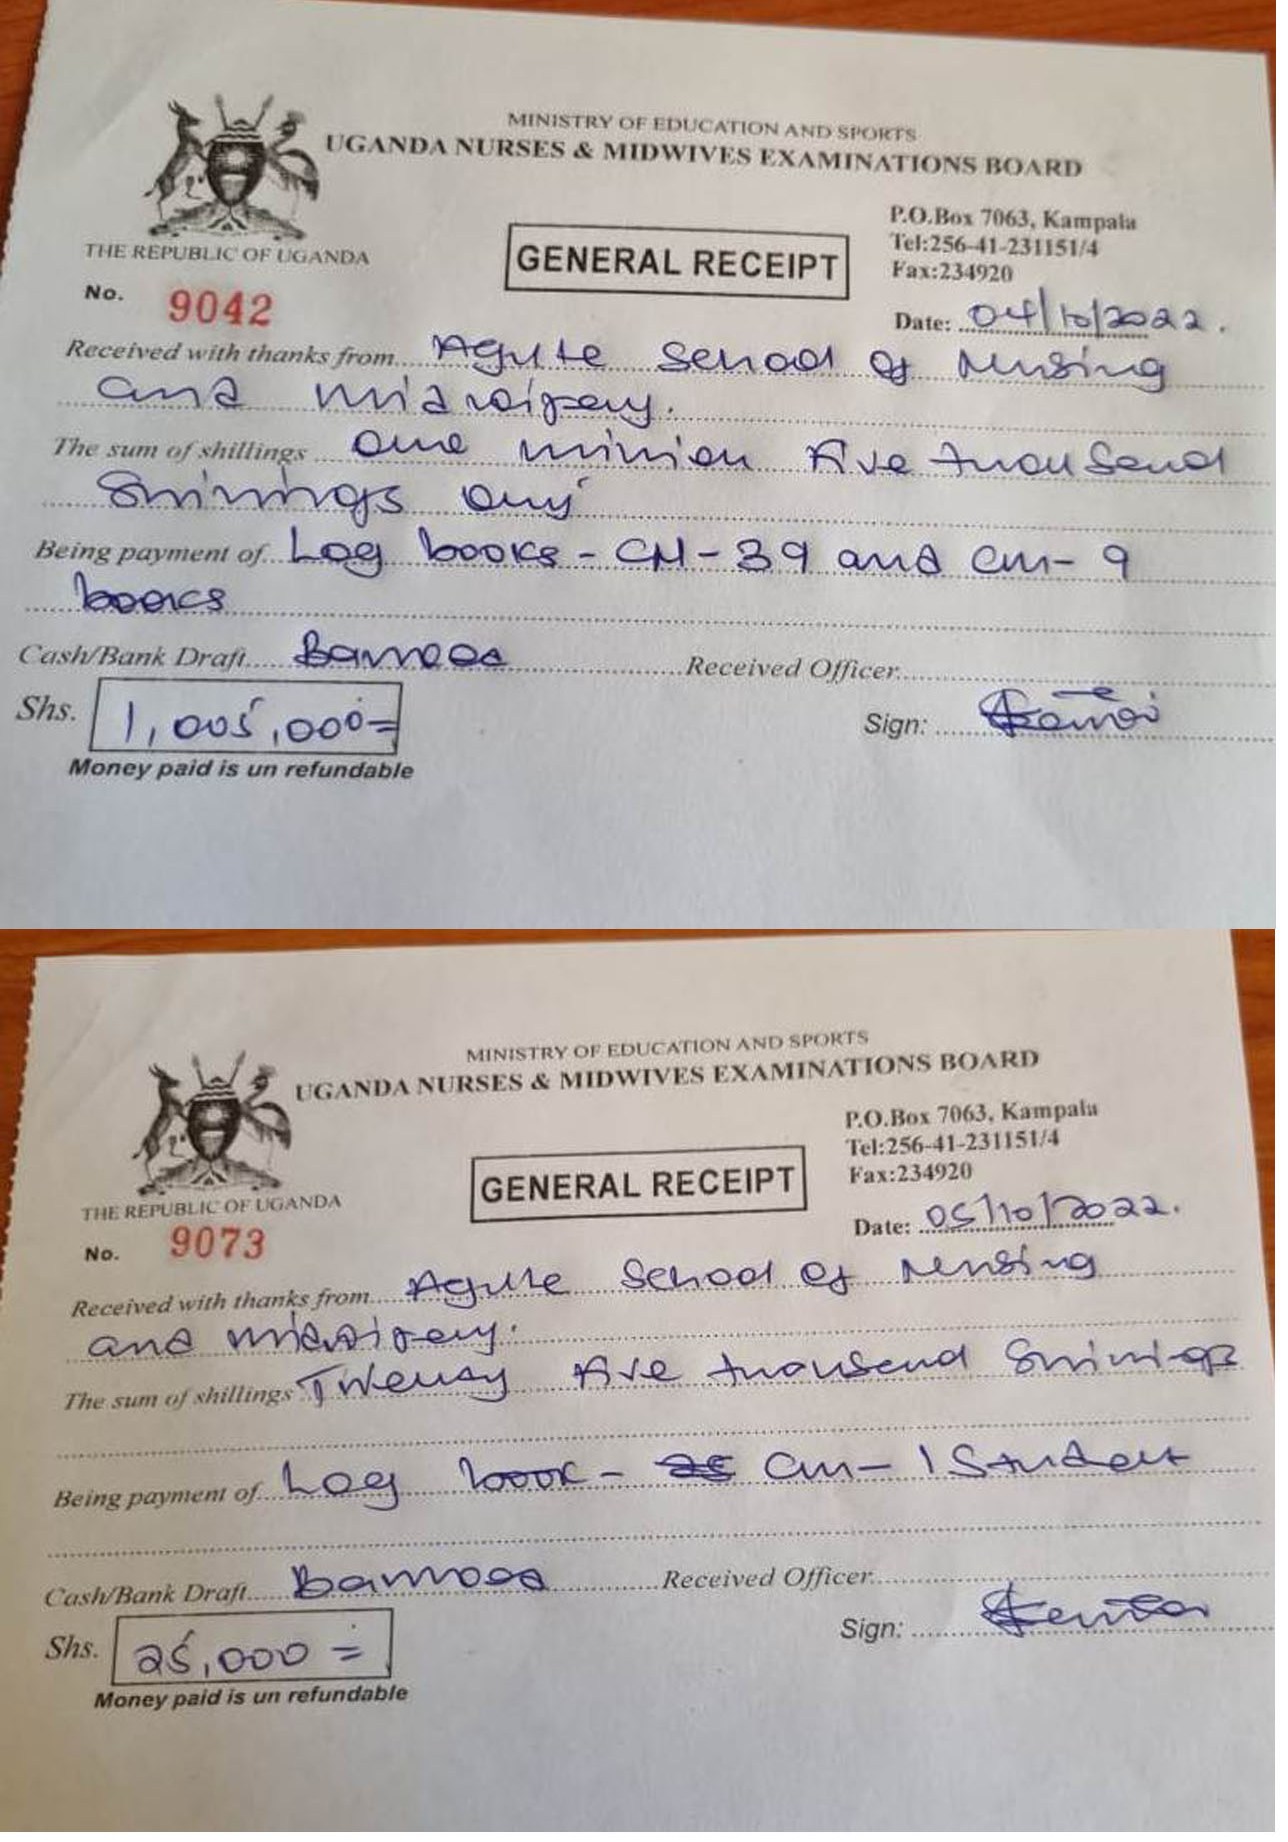 MINISTRY OF EDUCATION AND SPORTS
UGANDA NURSES & MIDWIVES EXAMINATIONS BOARD
THE REPUBLIC OF UGANDA
GENERAL RECEIPT
P.O.Box 7063, Kampala
Tel:256-41-231151/4
Fax:234920
No. 9042
Date: 04/10/2022.
Received with thanks from Agule School of Nursing
and midwifery.
The sum of shillings One million Five thousand
Shillings only
Being payment of Log books - CN - 39 and CM - 9
books
Cash/Bank Draft Received Officer
Shs. 1,005,000=
Sign:
Money paid is un refundable
MINISTRY OF EDUCATION AND SPORTS
UGANDA NURSES & MIDWIVES EXAMINATIONS BOARD
THE REPUBLIC OF UGANDA
GENERAL RECEIPT
P.O.Box 7063, Kampala
Tel:256-41-231151/4
Fax:234920
No. 9073
Date: 05/10/2022.
Received with thanks from Agule School of Nursing
and midwifery.
The sum of shillings Twenty Five thousand Shillings
Being payment of Log book - CM - 1 Student
Cash/Bank Draft Received Officer
Shs. 25,000=
Sign:
Money paid is un refundable